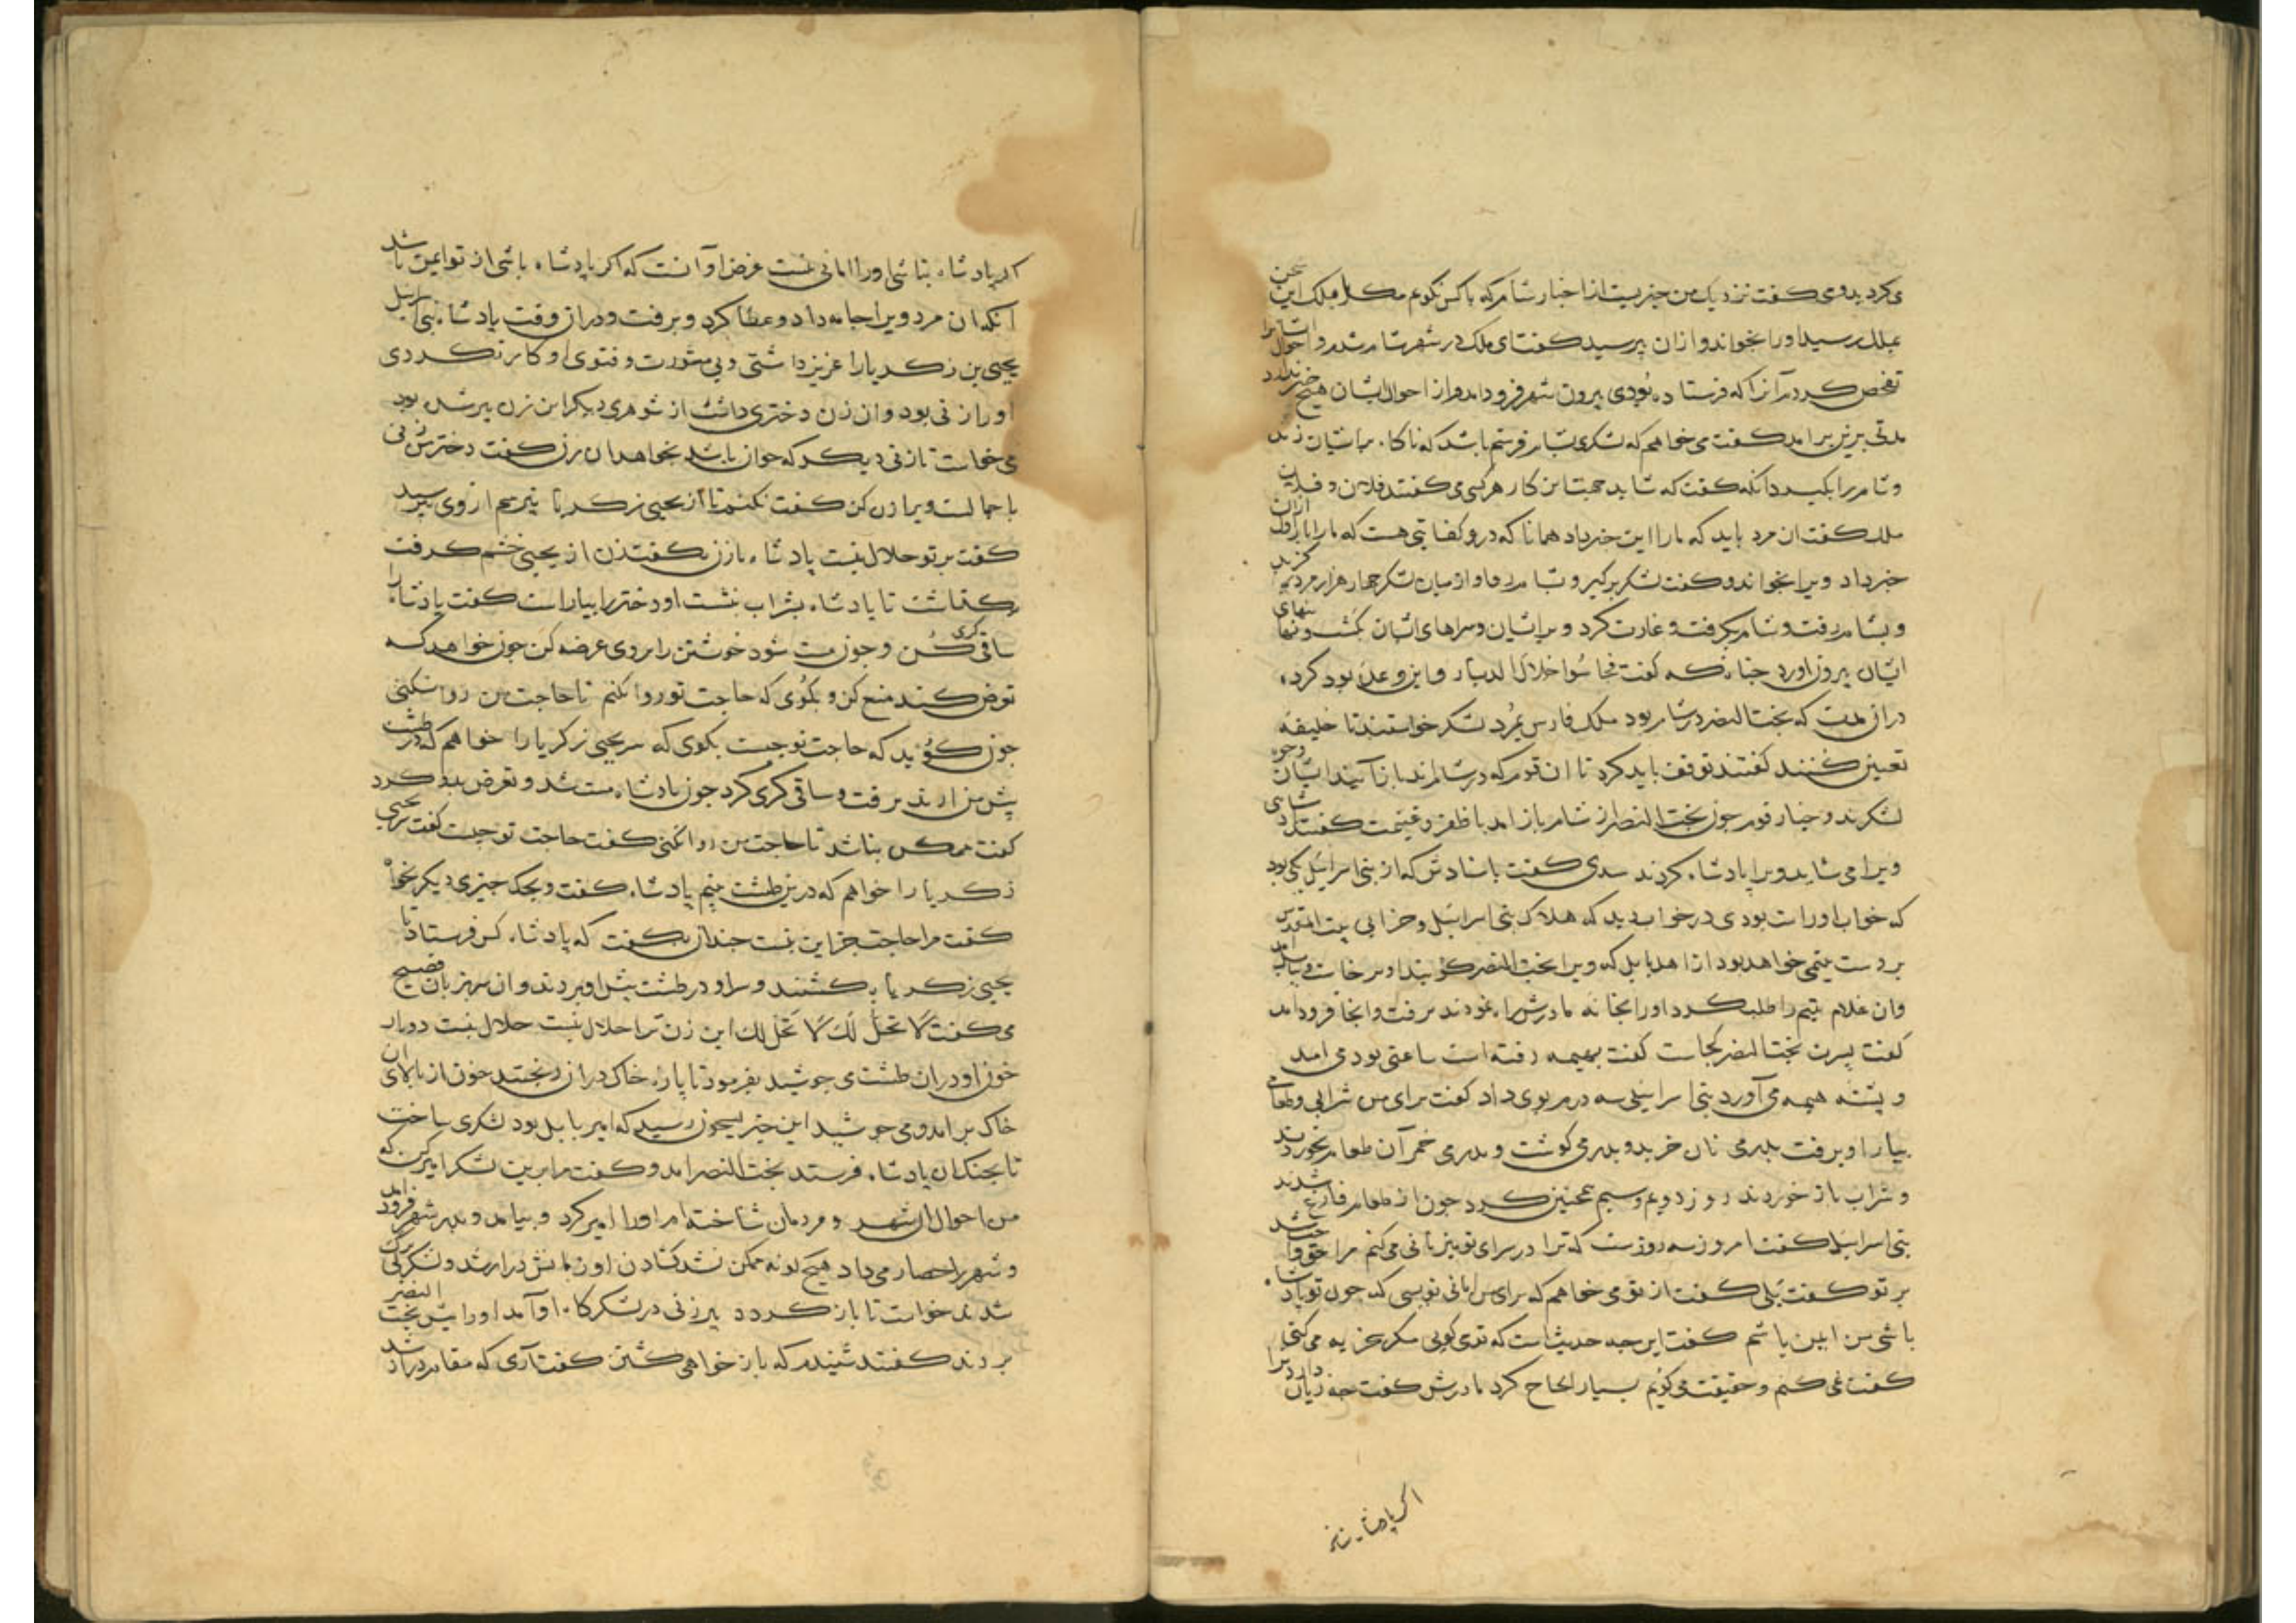 می کرد بدو می کفت نزدیک من خبریست از اخبار شام که با کس نکویم مکر با ملک این سخن
بملک رسید او را بخواند و ازان پرسید کفت ای ملک در شهر شام شدم و احوال ایشانرا
تفحص کردم آنرا که فرستاده بودی بیرون شهر فرود امد و از احوال ایشان هیچ خبر ندارد
مدتی برین بر امد کفت می خواهم که لشکری بشام فرستم باشد که ناکاه بر ایشان زند
و شام را بکیرد انکه کفت که شاید جهت این کار هر کسی می کفتند فلان و فلان
ملک کفت ان مرد باید که ما را این خبر داد همانا که درو کفایتی هست که ما را ازان اول
خبر داد ویرا بخواند و کفت لشکر بر کیر و بشام رو او از میان لشکر چهار هزار مرد بکزید
و بشام رفت و شام بکرفت و غارت کرد و بر ایشان و سراهای ایشان بکشت و
ایشان بیرون اورد چنانکه کفت فجاسوا خلال الدیار و این وعده بود کرده
دران مدت که بخت النصر در شام بود ملک فارس بمرد لشکر خواستند تا خلیفه
تعیین کنند کفتند توقف باید کرد تا ان قوم که در شام اند باز آیند ایشان وجوه
لشکرند و خیار قوم چون بخت النصر از شام باز امد با ظفر و غنیمت کفتند شاهی
ویرا می شاید ویرا پادشاه کردند سدی کفت باسنادش که از بنی اسرائیل یکی بود
که خواب او راست بودی در خواب دید که هلاک بنی اسرائیل و خرابی بیت المقدس
بر دست یتیمی خواهد بود از اهل بابل که ویرا بخت النصر کویند او برخاست و ببابل امد
وان غلام یتیم را طلب کرد او را بخانه مادرش راه نمودند برفت و انجا فرود امد
کفت پسرت بخت النصر کجاست کفت بهیمه رفته است ساعتی بود می امد
و پشته هیمه می آورد بنی اسرائیلی سه درم بوی داد کفت برای من شرابی و طعامی
بیار او برفت بدرمی نان خرید و بدرمی کوشت و بدرمی خمر آن طعام بخوردند
و شراب باز خوردند روز دویم و سیم همچنین کرد چون از طعام فارغ شدند
بنی اسرائیل کفت امروز سه روزست که ترا در سرای تو میزبانی می کنم مرا حق واجب شد
بر تو کفت بلی کفت از تو می خواهم که برای من امانی نویسی که چون تو پادشاه
باشی من ایمن باشم کفت این چه حدیث است که تو می کویی مکر سخریه می کنی
کفت نمی کنم و حقیقت می کویم بسیار الحاح کرد مادرش کفت چه زیان دارد ترا
اکر پادشاه نباشی
اکر پادشاه نباشی او را امانی نیست غرض او آنست که اکر پادشاه باشی از تو ایمن باشد
انکه ان مرد ویرا جامه داد و عطا کرد و برفت و دران وقت پادشاه بنی اسرائیل
یحیی بن زکریا را عزیز داشتی و بی مشورت و فتوی او کار نکردی
او را زنی بود و ان زن دختری داشت از شوهری دیکر این زن پیر شده بود
می خواست تا زنی دیکر که جوان باشد بخواهد ان زن کفت دختر من زنی
با جمالست ویرا زن کن کفت نکنم تا از یحیی زکریا نپرسم از وی بپرسید
کفت بر تو حلال نیست پادشاه با زن بکفت زن از یحیی خشم کرفت
بکذاشت تا پادشاه بشراب بنشست او دختر را بیاراست کفت پادشاه را
ساقی کری کن و چون مست شود خوشتن را بروی عرضه کن چون خواهد که
تعرض کند منع کن و بکوی که حاجت تو روا نکنم تا حاجت من روا نکنی
چون کوید که حاجت تو چیست بکوی که سر یحیی زکریا را خواهم که در طشت
پیش من ارند برفت و ساقی کری کرد چون پادشاه مست شد و تعرض بدو کرد
کفت ممکن نباشد تا حاجت من روا نکنی کفت حاجت تو چیست کفت سر یحیی
زکریا را خواهم که درین طشت بینم پادشاه کفت ویحک چیزی دیکر بخواه
کفت مرا حاجت جز این نیست چندان بکفت که پادشاه کس فرستاد تا
یحیی زکریا بکشتند و سر او در طشت پیش او بردند و ان سر بزبان فصیح
می کفت لا تحل لك لا تحل لك این زن ترا حلال نیست حلال نیست دوبار
خون او دران طشت می جوشید بفرمود تا پاره خاک دران ریختند خون از بالای ان
خاک بر امد و می جوشید این خبر بسیحون رسید که امیر بابل بود لشکری ساخت
تا بجنک ان پادشاه فرستد بخت النصر امد و کفت مرا برین لشکر امیر کن که
من احوال ان شهر و مردمان شناخته ام او را امیر کرد و بیامد و بدر شهر فرود امد
و شهر را حصار می داد هیچ کونه ممکن نشد کشادن او زمانش دراز شد و لشکر بی برک
شدند خواست تا باز کردد پیرزنی در لشکرکاه او آمد او را پیش بخت النصر
بردند کفتند شنیدم که باز خواهی کشتن کفت آری که مقام دراز شد